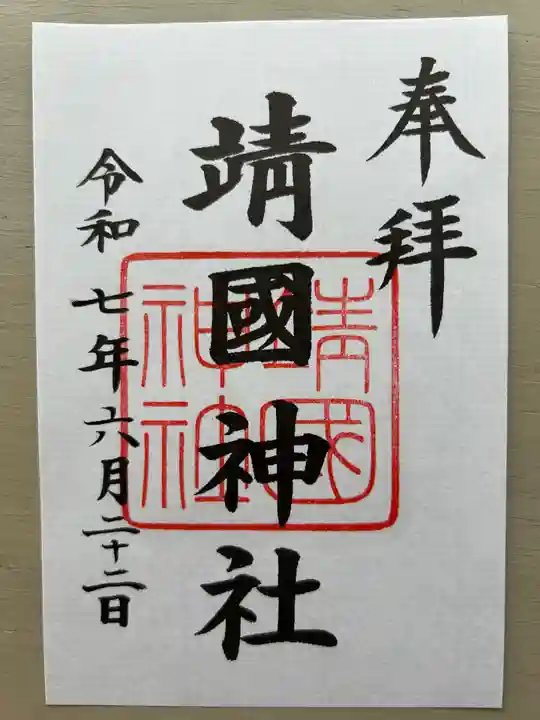 奉拝
靖國神社
靖國神社
令和七年六月二十二日